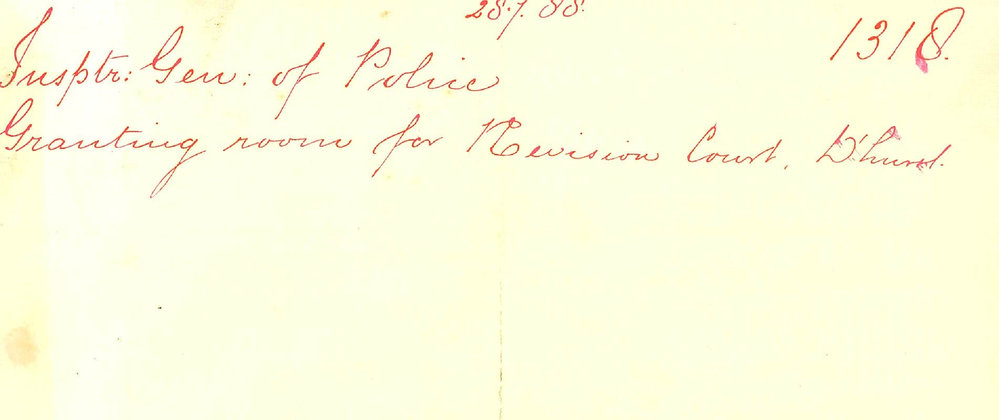 28.7.88.
1318.
Insptr: Gen: of Police
Granting room for Revision Court, D'hurst.